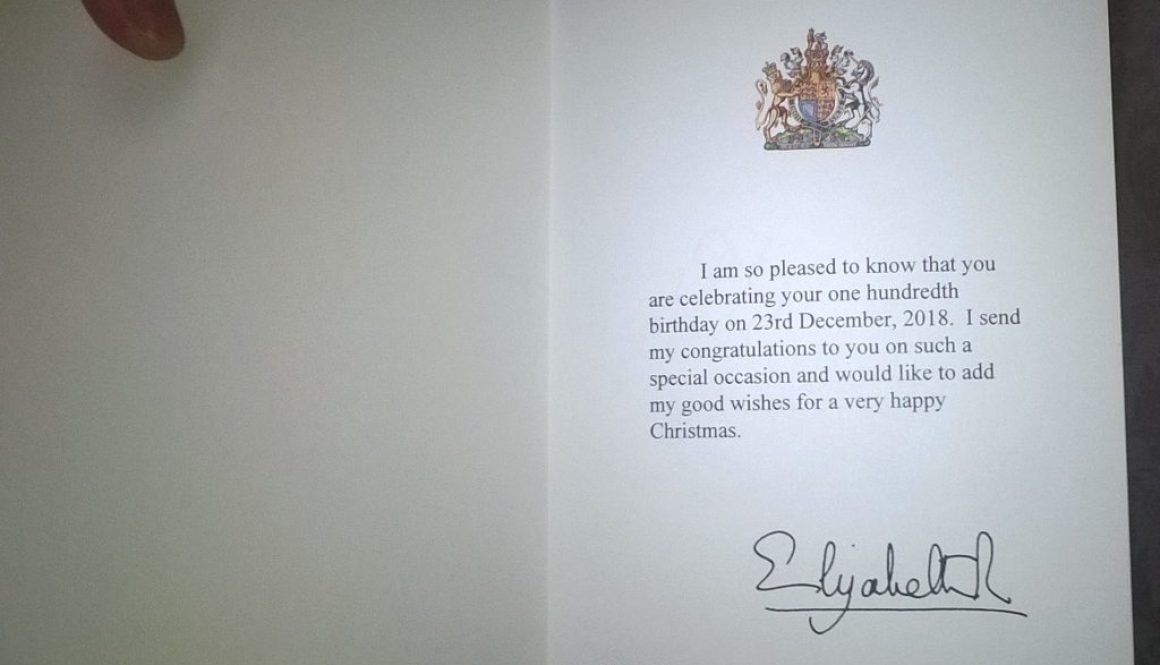 I am so pleased to know that you
are celebrating your one hundredth
birthday on 23rd December, 2018.  I send
my congratulations to you on such a
special occasion and would like to add
my good wishes for a very happy
Christmas.
Elizabeth R